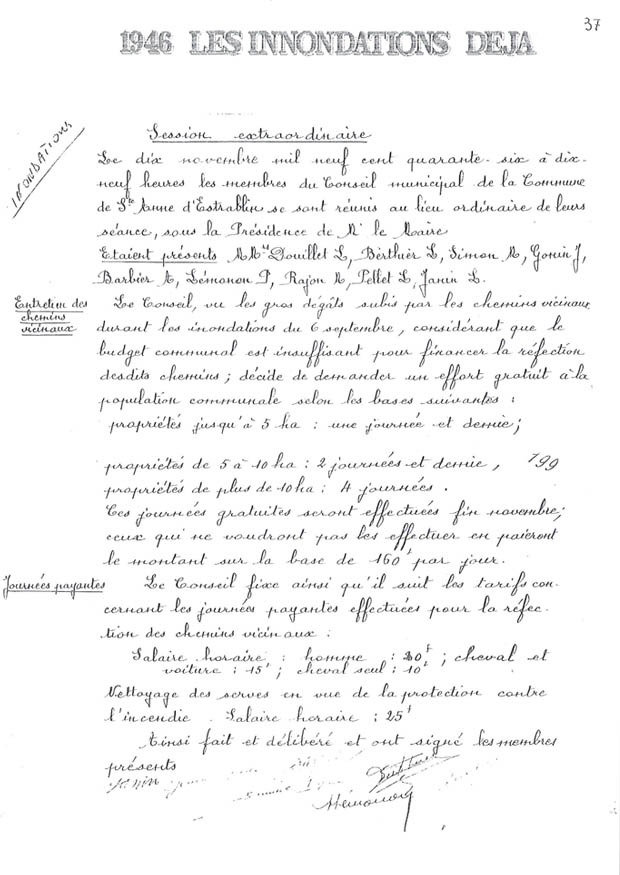 37
1946 LES INNONDATIONS DEJA
INONDATIONS
Session extraordinaire
Le dix novembre mil neuf cent quarante-six à dix-
neuf heures les membres du Conseil municipal de la Commune
de Ste Anne d'Estrablin se sont réunis au lieu ordinaire de leurs
séance, sous la Présidence de Mr le Maire
Etaient présents MMrs Douillet L, Berthier L, Simon M, Gonin J,
Barbier A, Lémonon P, Rajon M, Pellet L, Janin L.
Entretien des
chemins
vicinaux
Le Conseil, vu les gros dégâts subis par les chemins vicinaux
durant les inondations du 6 septembre, considérant que le
budget communal est insuffisant pour financer la réfection
desdits chemins ; décide de demander un effort gratuit à la
population communale selon les bases suivantes :
propriétés jusqu'à 5 ha : une journée et demie ;
propriétés de 5 à 10 ha : 2 journées et demie , 199
propriétés de plus de 10 ha : 4 journées .
Ces journées gratuites seront effectuées fin novembre;
ceux qui ne voudront pas les effectuer en paieront
le montant sur la base de 160f par jour.
Journées payantes
Le Conseil fixe ainsi qu'il suit les tarifs con-
cernant les journées payantes effectuées pour la réfec-
tion des chemins vicinaux :
Salaire horaire : homme : 20f ; cheval et
voiture : 15f ; cheval seul : 10f
Nettoyage des serves en vue de la protection contre
l'incendie . Salaire horaire : 25f
Ainsi fait et délibéré et ont signé les membres
présents
Janin
Lémonon